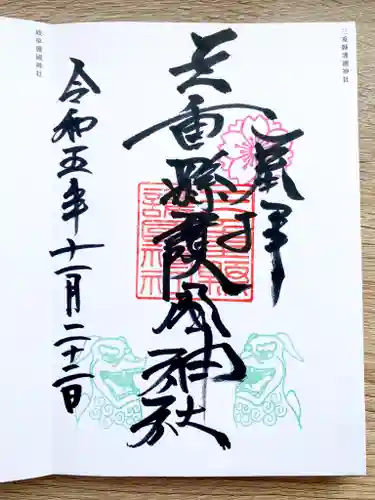 三重縣護國神社
奉拝
三重縣護國神社
令和五年十一月二十三日
岐阜護國神社